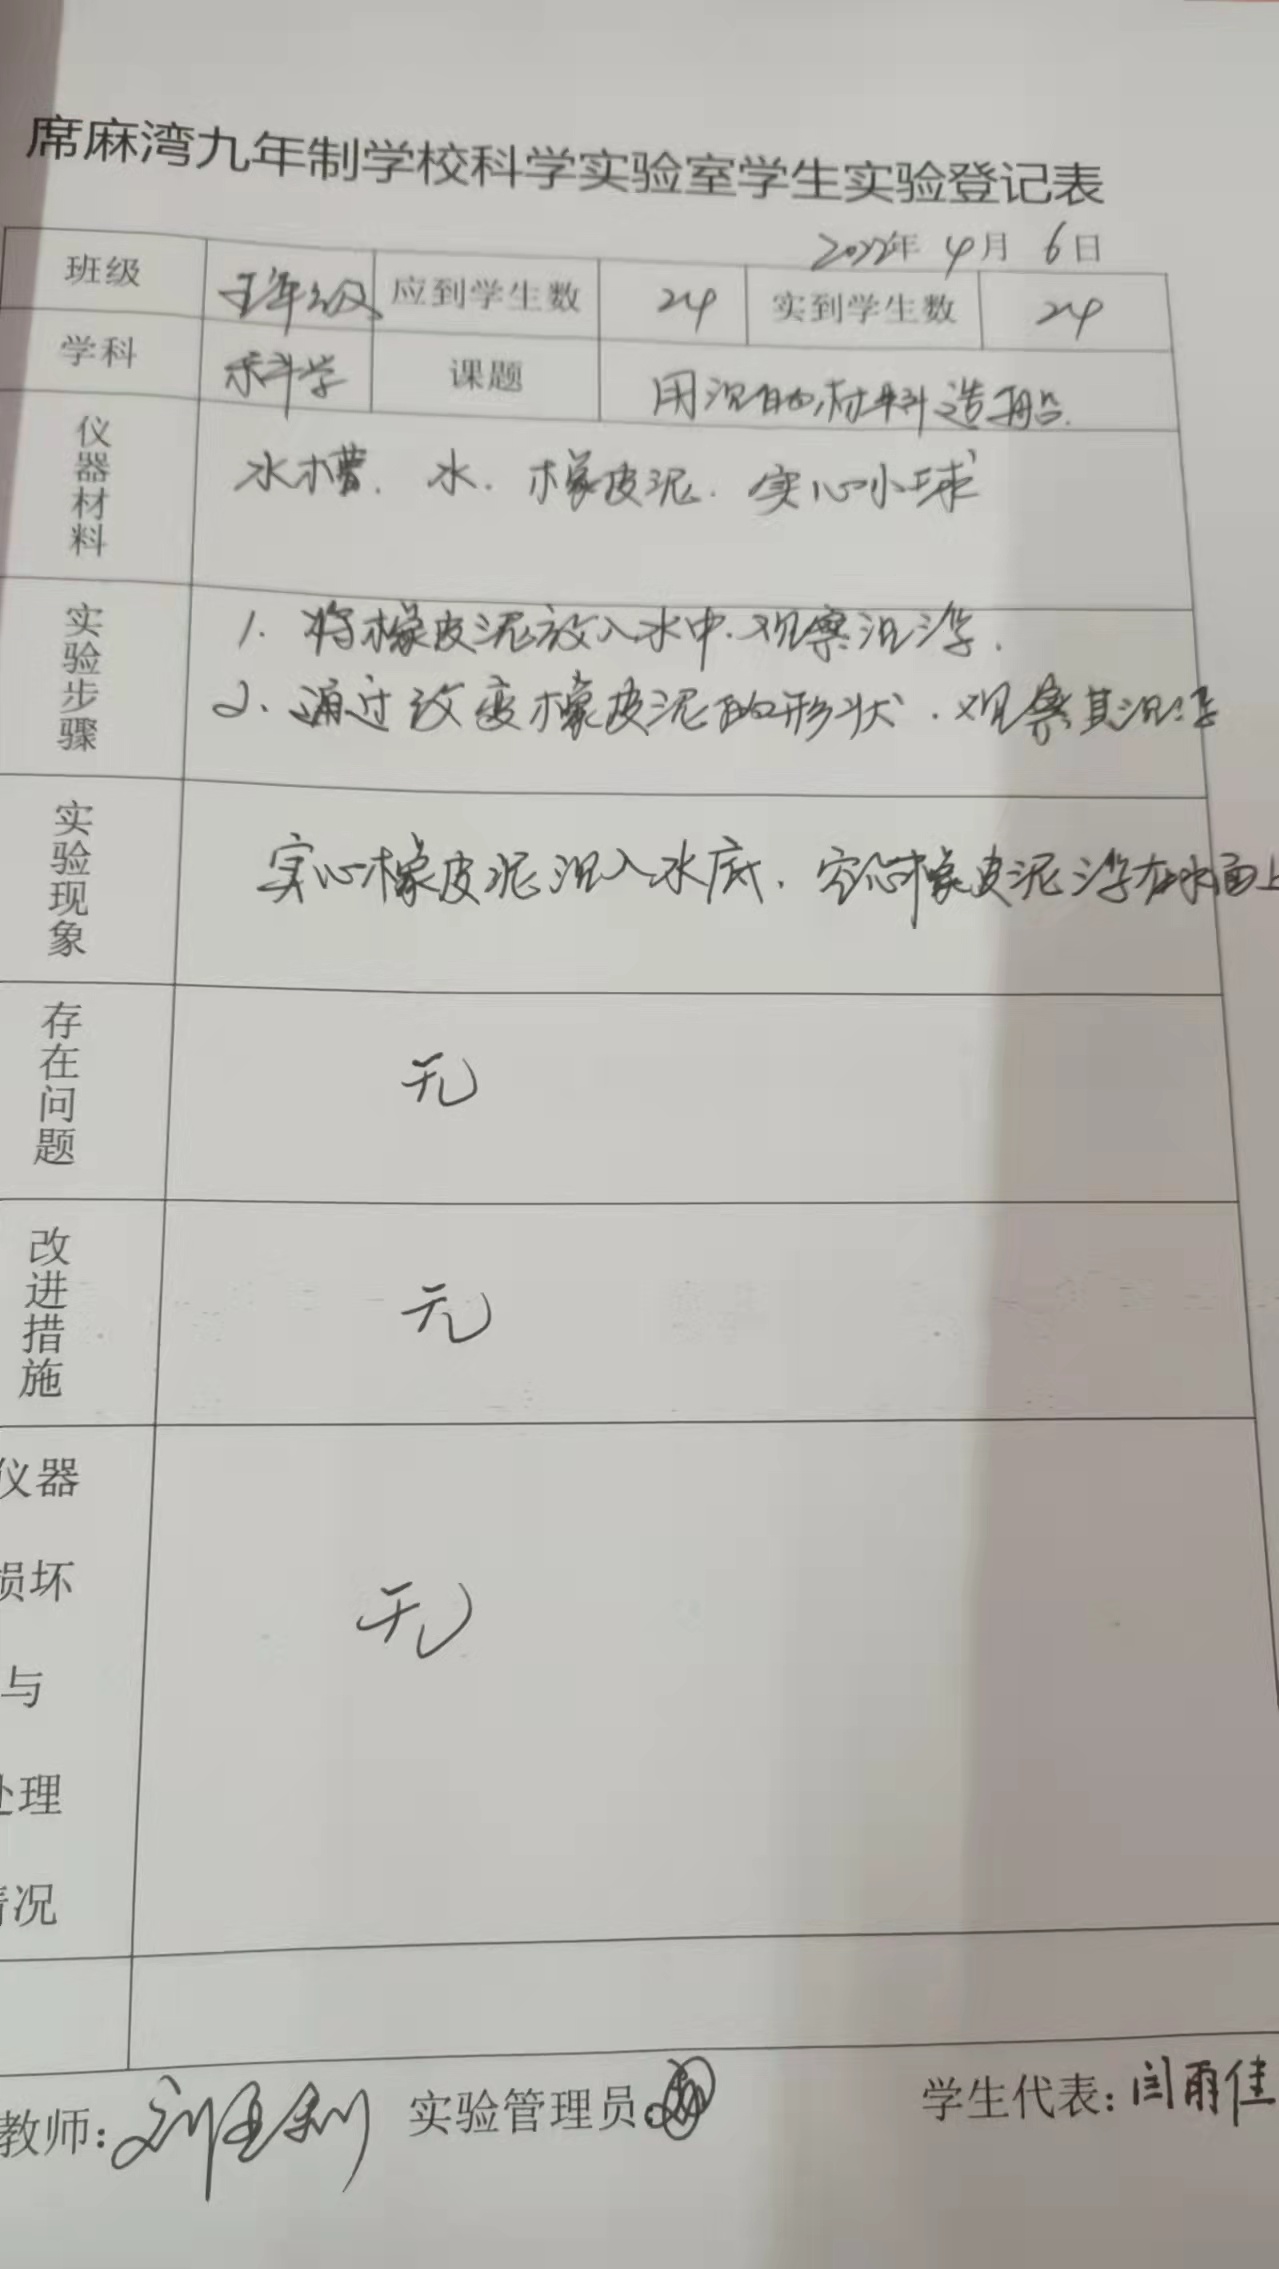 席麻湾九年制学校科学实验室学生实验登记表
2022年 4月 6日
班级 五年级 应到学生数 24 实到学生数 24
学科 科学 课题 用沉的材料造船.
仪器材料 水槽、水、橡皮泥、实心小球
实验步骤 1. 将橡皮泥放入水中.观察沉浮.
2. 通过改变橡皮泥的形状.观察其沉浮
实验现象 实心橡皮泥沉入水底.空心橡皮泥浮在水面上
存在问题 无
改进措施 无
仪器
损坏
与
处理
情况
无
教师: 实验管理员: 学生代表:闫雨佳